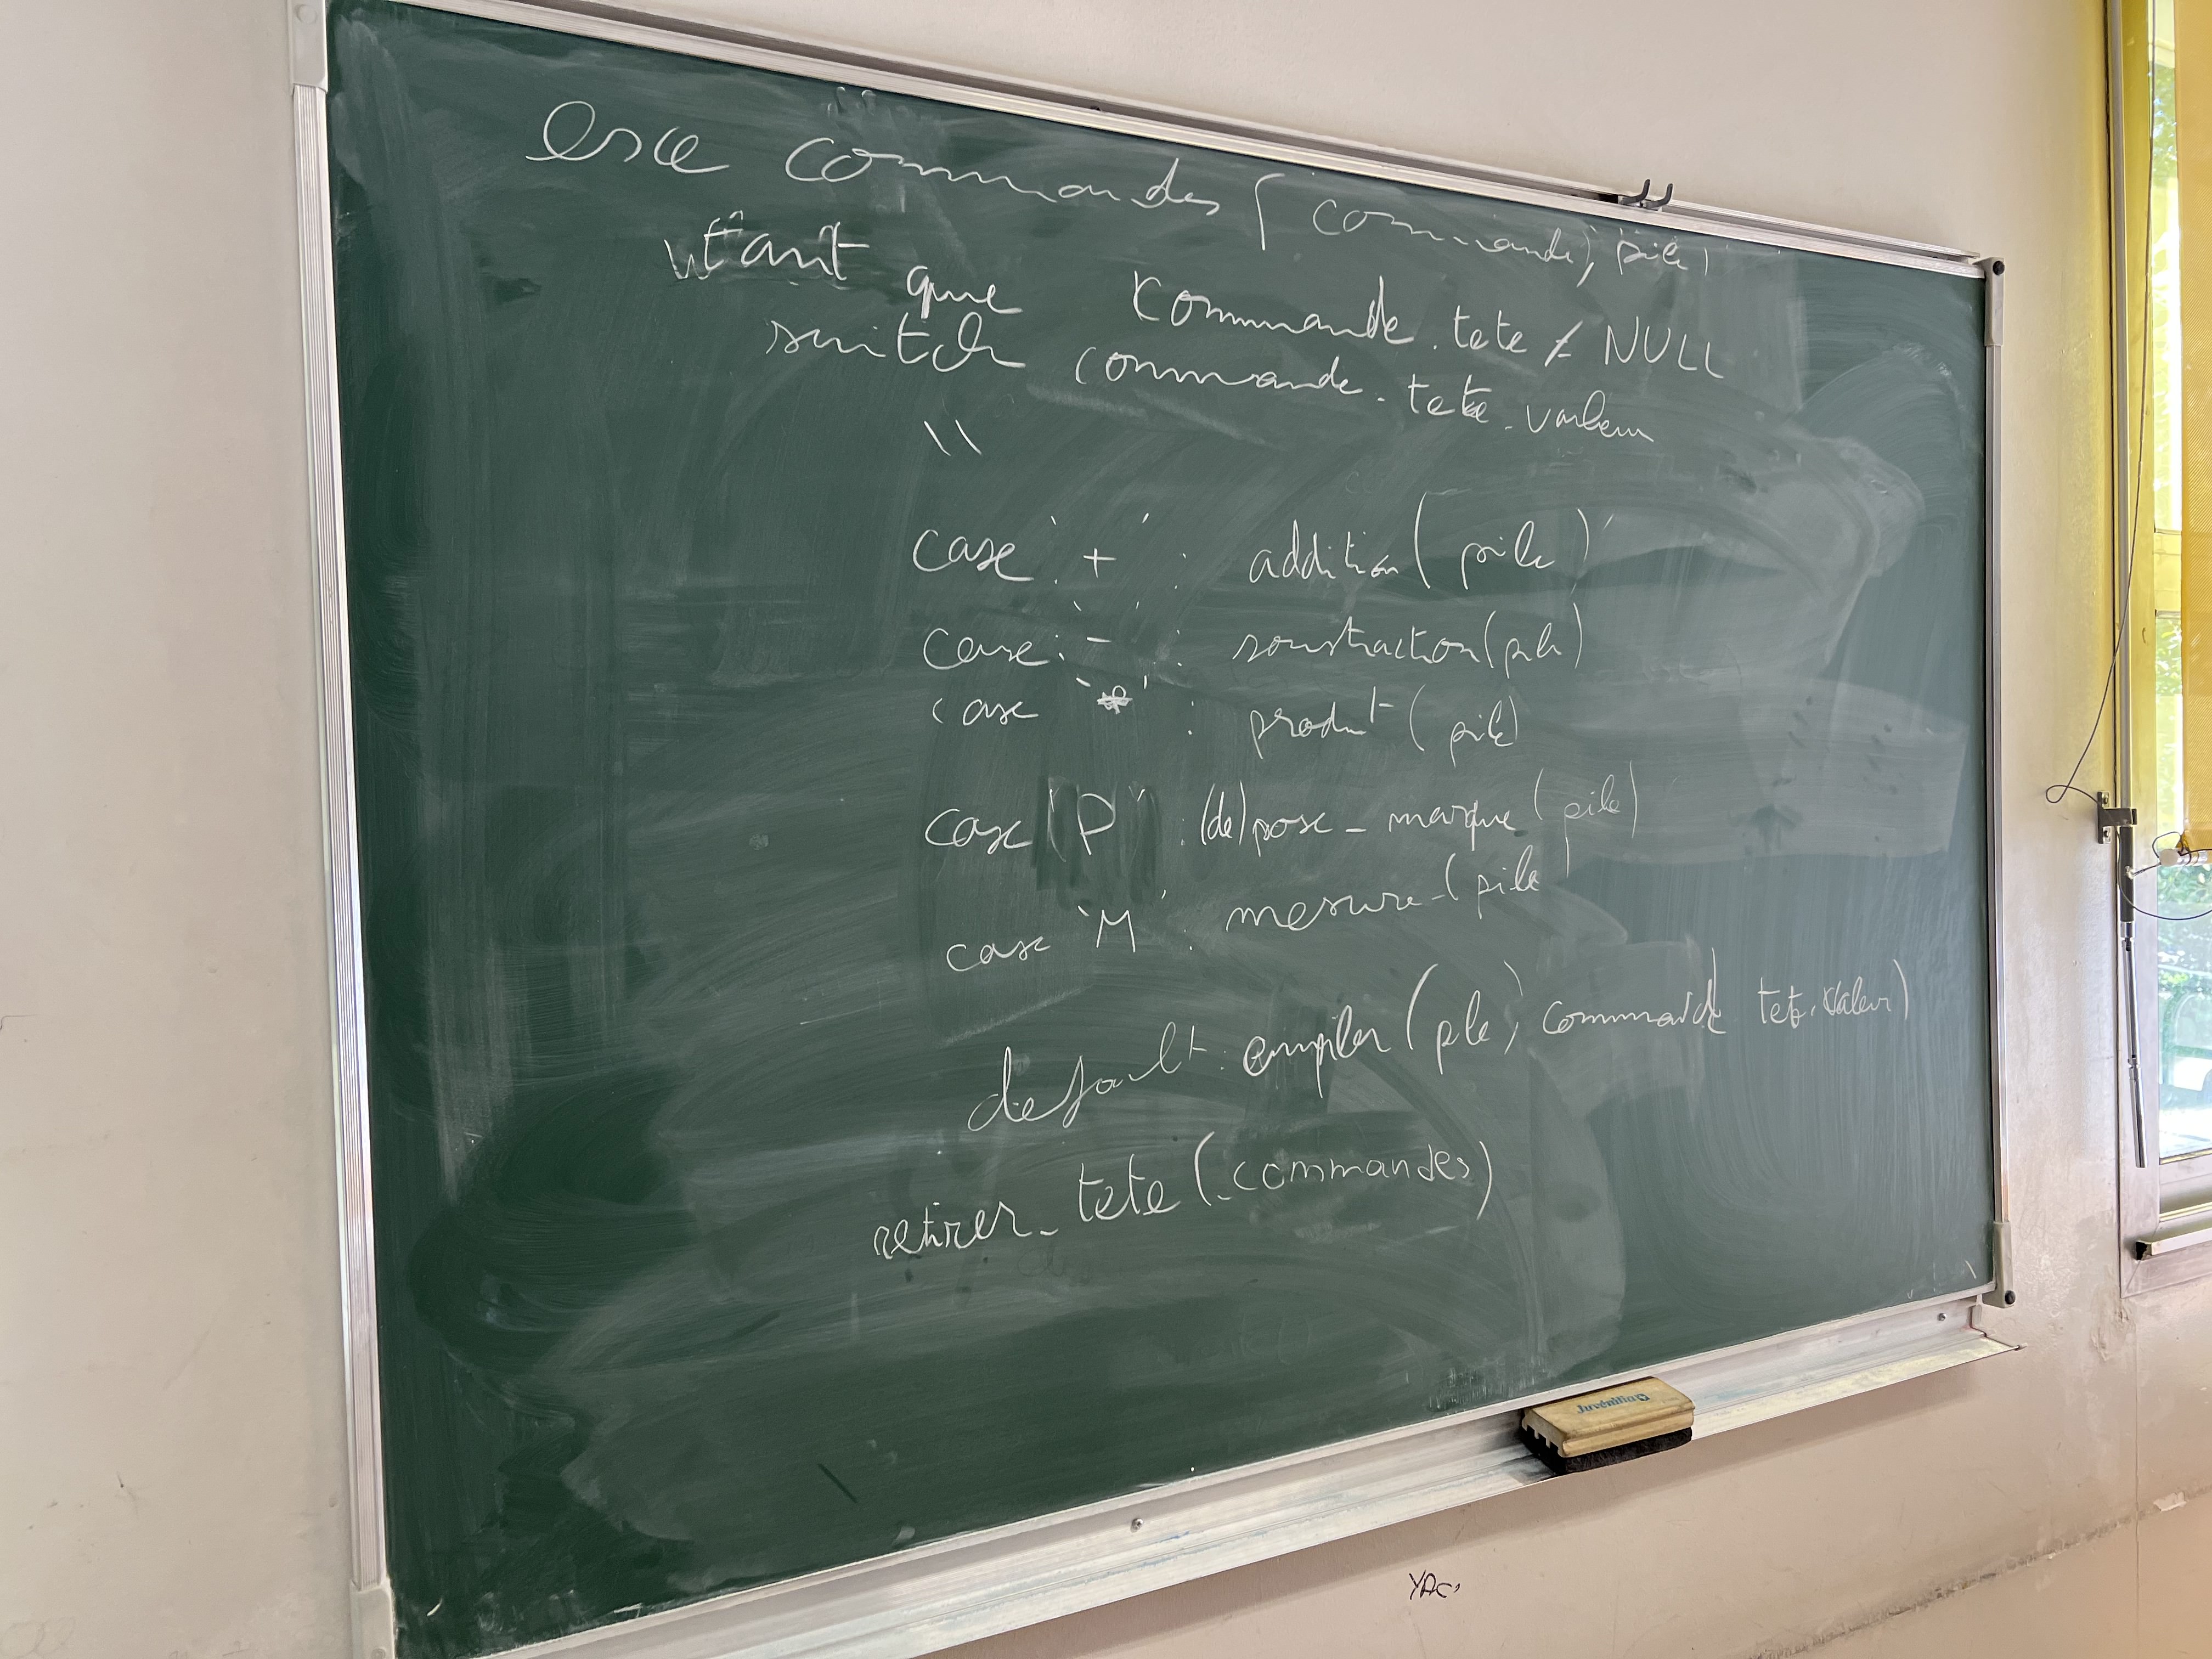 exe commandes (commande, pile)
tant que commande.tete ≠ NULL
switch commande.tete.valeur
\\
case '+' : addition(pile)
case '-' : soustraction(pile)
case '*' : produit(pile)
case 'P' : (de)pose_marque(pile)
case 'M' : mesure_(pile
default : empiler(pile, commande tete.valeur)
retirer_tete(commandes)
Juvenilia
YAC